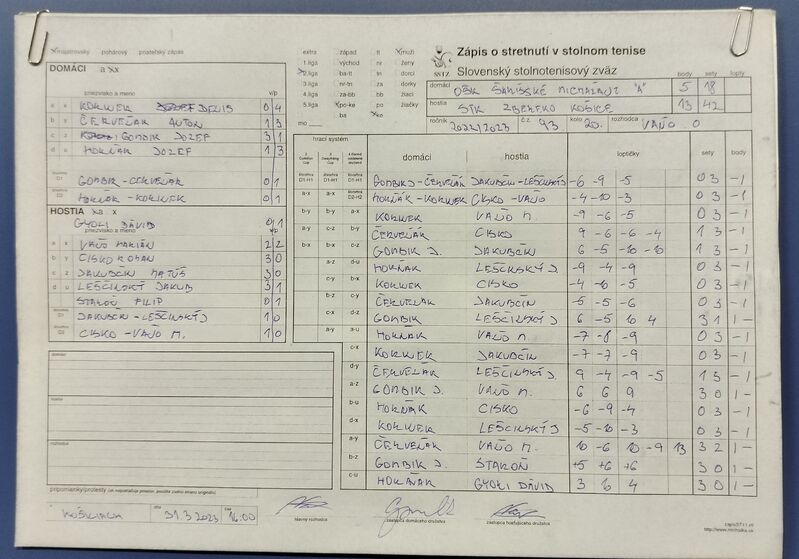 majstrovský pohárový priateľský zápas
DOMÁCI a x
priezvisko a meno v/p
a x KORINEK DENIS 0 4
b y ČERVEŇÁK ANTON 1 3
c z GOMBIK JOZEF 3 1
d u HORŇÁK JOZEF 1 3
štvorhra D1 GOMBIK - ČERVEŇÁK 0 1
štvorhra D2 HORŇÁK - KORINEK 0 1
HOSTIA a x
GYÖLI DÁVID 0 1
priezvisko a meno v/p
a x VAŇO MARIÁN 2 2
b y CISKO ROMAN 3 0
c z JAKUBČIN MATÚŠ 3 0
d u LEŠČINSKÝ JAKUB 3 1
STAROŇ FILIP 0 1
D1 JAKUBČIN - LEŠČINSKÝ J 1 0
D2 CISKO - VAŇO M. 1 0
domáci
hostia
rozhodca
pripomienky/protesty
31.3.2023 čas 16:00
hlavný rozhodca zástupca domáceho družstva zástupca hosťujúceho družstva
extra západ tt muži
1.liga východ nr ženy
2.liga ba-tt tn dorci
3.liga nr-tn za dorky
4.liga za-bb bb žiaci
5.liga po-ke po žiačky
mo ba ke
SSTZ
Zápis o stretnutí v stolnom tenise
Slovenský stolnotenisový zväz
body sety lopty
domáci OŠK ŠARIŠSKÉ MICHAĽANY "A" 5 18
hostia STK ZBEREKO KOŠICE 13 42
ročník 2022/2023 č.z. 93 kolo 20. rozhodca VAŇO O
hrací systém domáci hostia loptičky sety body
štvorhra D1-H1 štvorhra D1-H1 štvorhra D1-H1 GOMBIK J - ČERVEŇÁK JAKUBČIN - LEŠČINSKÝ J -6 -9 -5 0 3 - 1
a-x a-x štvorhra D2-H2 HORŇÁK - KORINEK CISKO - VAŇO -4 -10 -3 0 3 - 1
b-y b-y a-x KORINEK VAŇO M. -9 -6 -5 0 3 - 1
a-y c-z b-y ČERVEŇÁK CISKO 9 -6 -6 -4 1 3 - 1
b-x b-x c-z GOMBIK J. JAKUBČIN 6 -5 -10 -10 1 3 - 1
a-z d-u HORŇÁK LEŠČINSKÝ J. -9 -4 -9 0 3 - 1
c-y b-x KORINEK CISKO -4 -6 -5 0 3 - 1
b-z c-y ČERVEŇÁK JAKUBČIN -5 -5 -6 0 3 - 1
c-x d-z GOMBIK LEŠČINSKÝ J 6 -5 10 4 3 1 1 -
a-y a-u HORŇÁK VAŇO M. -7 -8 -9 0 3 - 1
c-x KORINEK JAKUBČIN -7 -7 -9 0 3 - 1
d-y ČERVEŇÁK LEŠČINSKÝ J. 9 -4 -9 -5 1 3 - 1
a-z GOMBIK J. VAŇO M. 6 6 9 3 0 1 -
b-u HORŇÁK CISKO -6 -9 -4 0 3 - 1
d-x KORINEK LEŠČINSKÝ J -5 -10 -3 0 3 - 1
a-y ČERVEŇÁK VAŇO M. 10 -6 10 -9 13 3 2 1 -
b-z GOMBIK J. STAROŇ +5 +6 +6 3 0 1 -
c-u HORŇÁK GYÖLI DÁVID 3 6 4 3 0 1 -